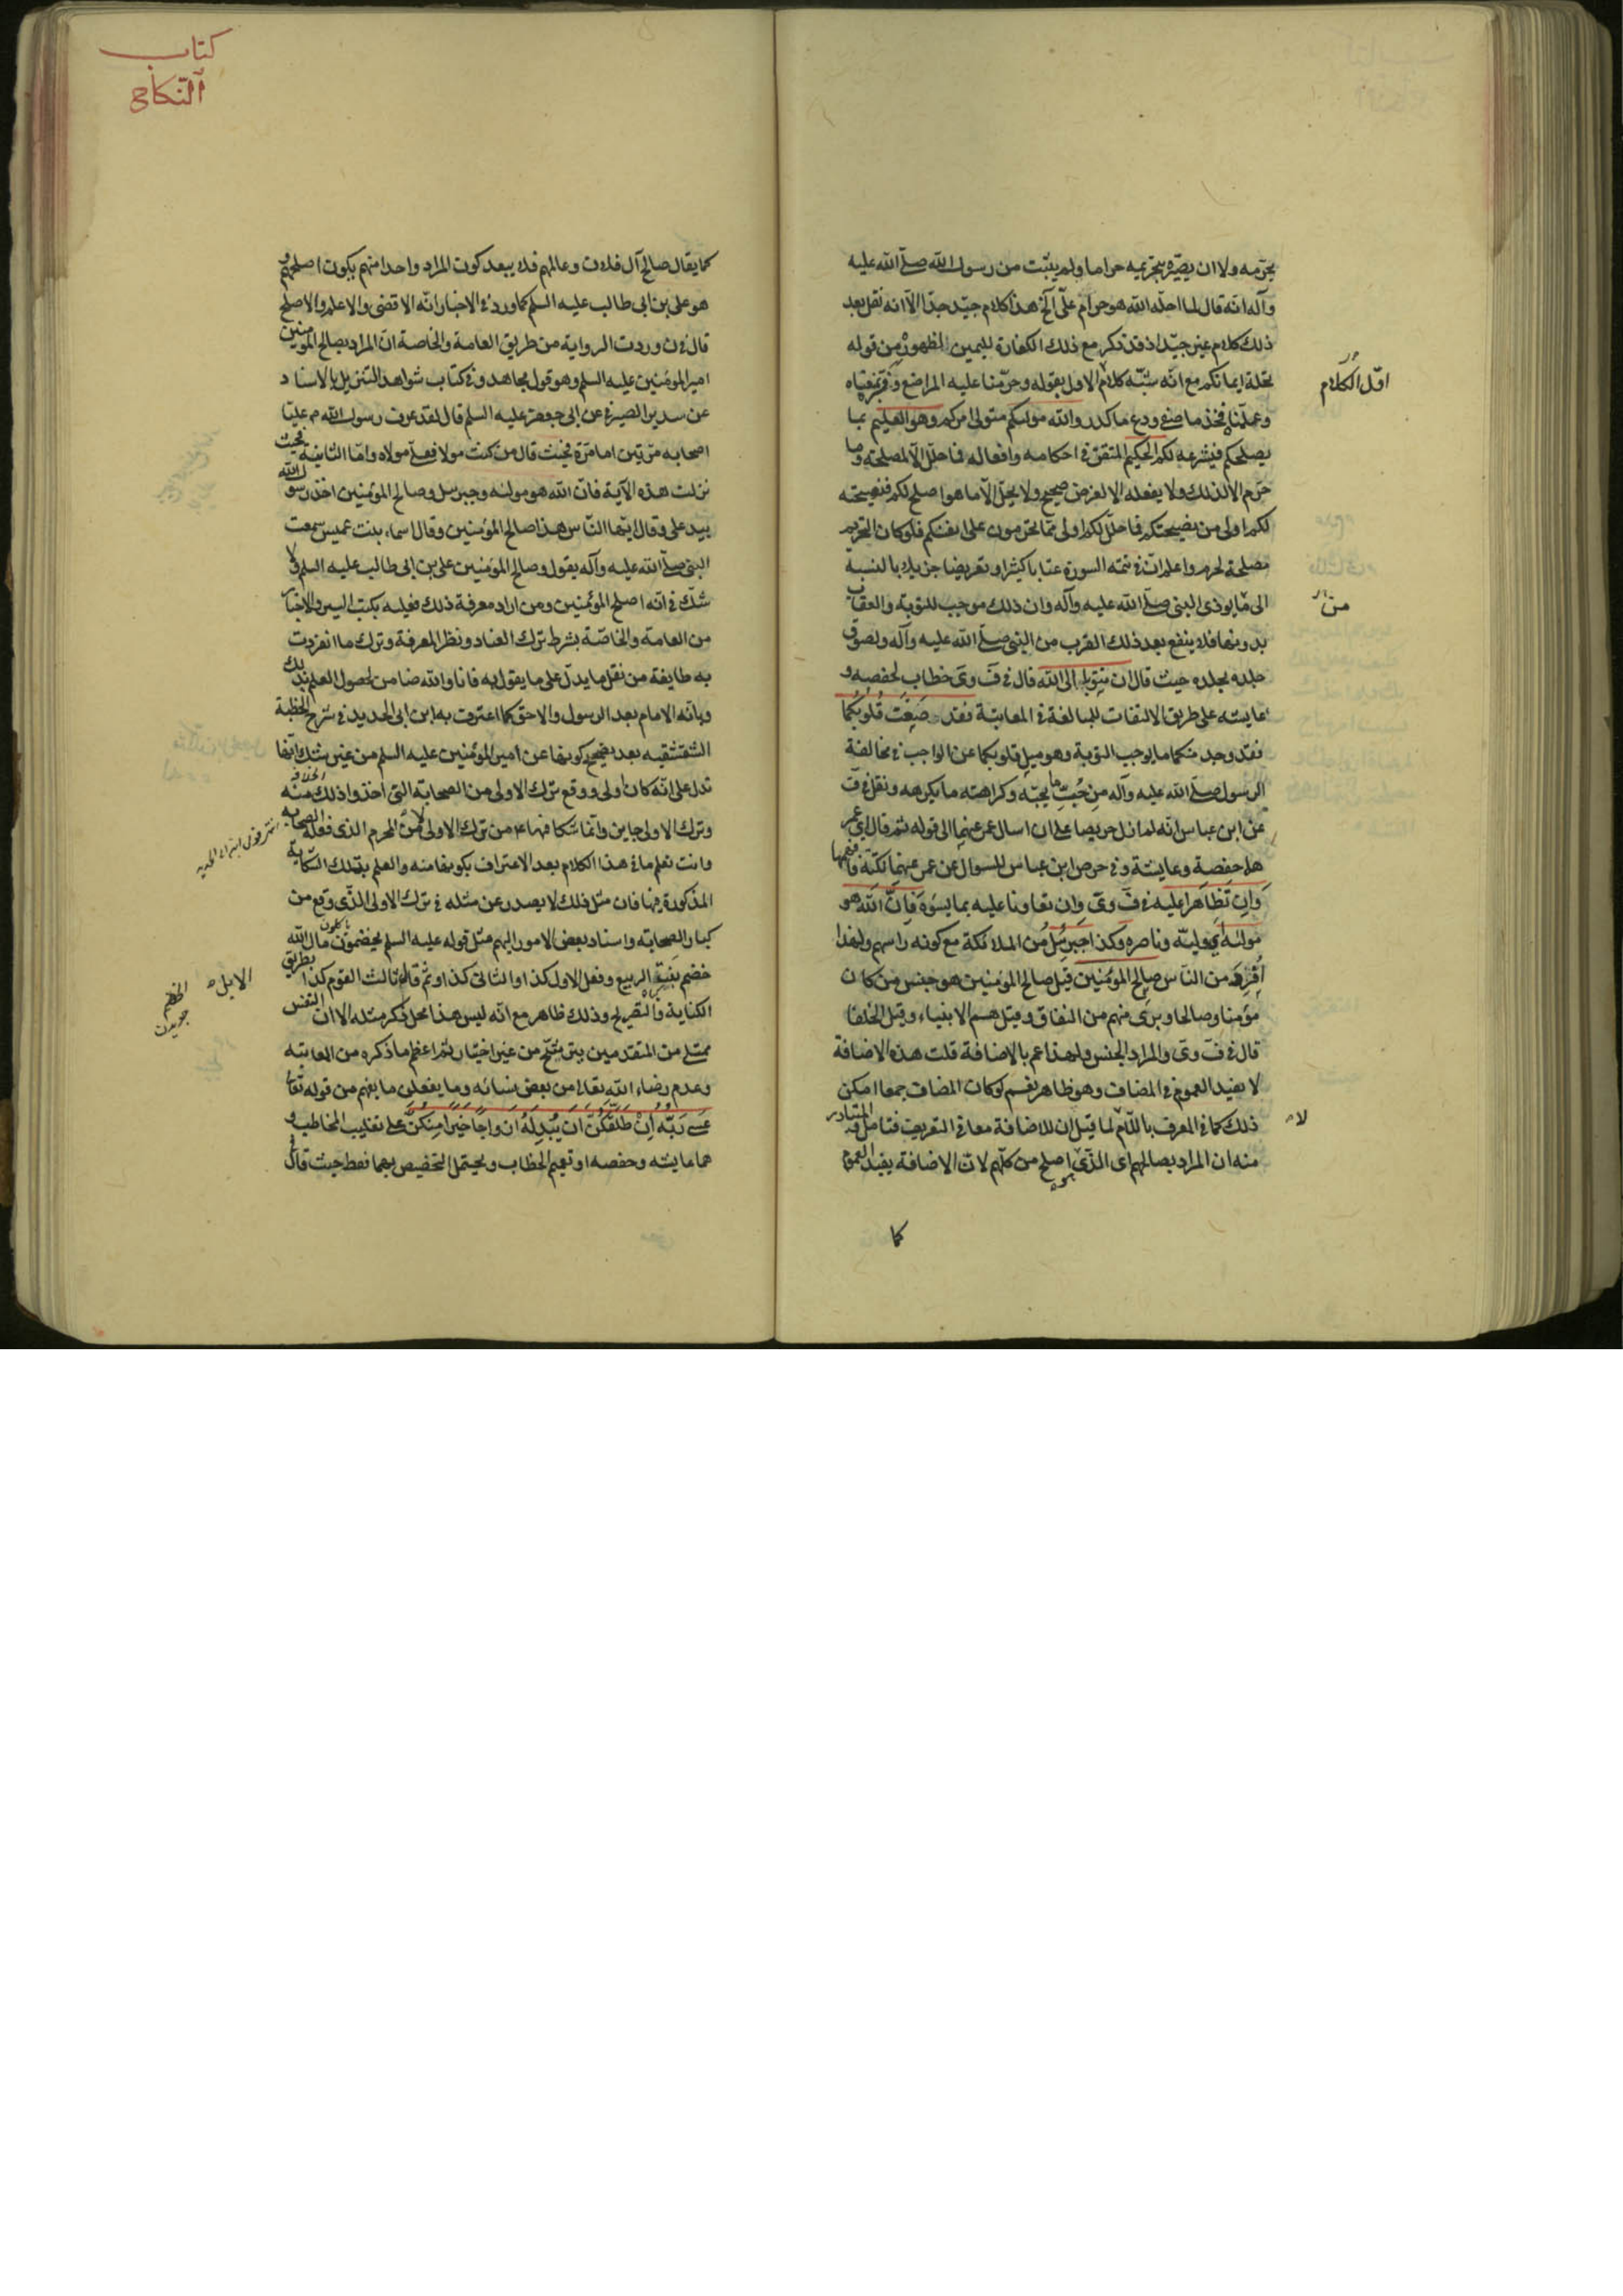 يحرّمه ولا ان يصيّره بتحريمه حراما ولم يثبت من رسول الله صلّى الله عليه
وآله انّه قال لما احلّه الله هو حرام علىّ الخ هذا كلام جيّد جدّا الّا انه نقل بعد
ذلك كلام غير جيّد اذ قد ذكر مع ذلك الكفارة لليمين لظهوره من قوله
تحلة ايمانكم مع انّه شبّه كلام الاول بقوله وحرّمنا عليه المراضع
فخذ ما صفى ودع ما كدر والله موليكم متولى امركم وهو العليم بما
يصلحكم فيشرعه لكم الحكيم المتقن في احكامه وافعاله فما حلّل الّا لمصلحة وما
حرّم الا لذلك ولا يفعله الا لغرض صحيح ولا يحلّ الّا ما هو اصلح لكم فنصيحته
لكم اولى من نصيحتكم فما احلّ لكم اولى ممّا تحرمون على انفسكم فلو كان التحريم
مصلحة لحرم واعلم انّ في تتمه السورة عتابا كثيرا وتعريضا جزيلا بالنسبة
الى من يوذى النبى صلّى الله عليه وآله وان ذلك موجب للتوبة والعقاب
بدونها فلا ينفع بعد ذلك القرب من النبى صلّى الله عليه وآله ولصوق
جلده بجلده حيث قال ان تتوبا الى الله قال في قٓ وىٓ خطاب لحفصه و
عايشه على طريق الالتفات للمبالغة في المعاتبة فقد صَغَت قُلوبُكُما
فقد وجد منكما ما يوجب التوبة وهو ميل قلوبكما عن الواجب في مخالفة
الرسول صلّى الله عليه وآله من حُبّ ما يحبّه وكراهته ما يكرهه ونقل في قٓ
عن ابن عباس انّه لم ازل حريصا على ان اسال عمر عنهما الى قوله ثم قال اى عمر
هما حفصة وعايشة وفي حرص ابن عباس للسوال عن عمر عنهما نكتة فافهمها
وَاِن تَظاهَرا عليه في قٓ وىٓ وان تعاونا عليه بما يسؤه فَاِنَّ الله هو
موليٰه اي وليّه وناصره وكذا جبرئيلُ من الملائكة مع كونه راسهم ولهذا
اُفرِدَ من النّاس صالِح المؤمنين قيل صالح المؤمنين هو جنس من كان
مؤمنا وصالحا وبرى منهم من النفاق وقيل هم الانبياء وقيل الخلفا
قال في قٓ وىٓ والمراد الجنس ولهذا عم بالاضافة قلت هذه الاضافة
لا يفيد العموم في المضاف وهو ظاهر نعم لو كان المضاف جمعا امكن
ذلك كما في المعرف باللّام لما قيل ان للاضافة معانى التعريف فتامل فالمتبادر
منه ان المراد بصالحهم اى الذّى اصلح من كلّهم لانّ الاضافة يفيد العموم
كما
اوّل الكلام
من
لا
كتاب
النّكاح
كما يقال صالح آل فلان وعالمهم فلا يبعد كون المراد واحدا منهم يكون اصلحهم و
هو على بن ابى طالب عليه السلم كما ورد في الاخبار انّه الاقضى والاعلم والاصلح
قال في ن وردت الرواية من طريق العامة والخاصة انّ المراد بصالح المؤمنين
امير المؤمنين عليه السلم وهو قول مجاهد وفي كتاب شواهد التنزيل بالاسناد
عن سدير الصيرفى عن ابى جعفر عليه السلم قال لقد عرف رسول الله ص عليّا
اصحابه مرّتين اما مرّة فحيث قال من كنت مولا فعلىّ مولاه وامّا الثانية فحيث
نزلت هذه الآية فانّ الله هو موليه وجبرئيل وصالح المؤمنين اخذ رسول الله
بيد على وقال ايّها النّاس هذا صالح المؤمنين وقال اسماء بنت عميس سمعت
النبى صلّى الله عليه وآله يقول وصالح المؤمنين على بن ابى طالب عليه السلم ولا
شكّ في انّه اصلح المؤمنين ومن اراد معرفة ذلك فعليه بكتب السير والاخبار
من العامة والخاصّة بشرط ترك العناد ونظر المعرفة وترك ما انفردت
به طايفة من نقل ما يدلّ على ما يقول به فانا والله ضامن لحصول العلم بذلك
وبانّه الامام بعد الرسول والاحق كما اعترف به ابن ابى الحديد في شرح الخطبة
الشقشقيه بعد تصحيح كونها عن امير المؤمنين عليه السلم من غير شك انّها
تدل على انّه كان اولى ووقع ترك الاولى من الصحابة التى اخذوا ذلك منه
وترك الاولى جاين وانّما شكا فيها عم من ترك الاولى لا من المحرم الذى فعله الصحابه
وانت تعلم ما في هذا الكلام بعد الاعتراف بكونها منه والعلم بتلك الشكاية
المذكورة فيها فان مثل ذلك لا يصدر عن مثله في ترك الاولى الذّى وقع من
كبار الصحابة واسناد بعض الامور اليهم مثل قوله عليه السلم يخضمون مال الله
خضم الابل نبتة الربيع وفعل الاول كذا والثانى كذا وثم قال ثالث القوم كذا بطريق
الكناية والتصريح وذلك ظاهر مع انّه ليس هذا محل ذكر مثله الا ان النفس
ممتلى من المتقدمين يترشّح من غير اختيار ثم اعظم ما ذكره من المعاتبه
وعدم رضاء الله تعالى من بعض نسائه وما يفعلن ما يفهم من قوله تعالى
عَسىٰ رَبُّه اِنْ طَلَّقَكُنَّ اَن يُبْدِلَهُ اَزواجًا خَيرًا مِنكُنَّ على تغليب المخاطب و
هما عايشه وحفصه او تعميم الخطاب ويحتمل التخصيص بهما فقط حيث قال
الابل
الخضم
جويدن